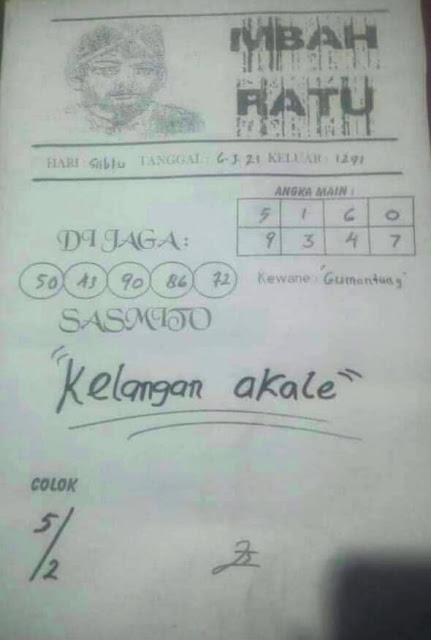 MBAH
RATU
HARI : Sabtu TANGGAL : 6-3-21 KELUAR : 1291
ANGKA MAIN :
5 1 6 0
9 3 4 7
DI JAGA :
50 43 90 86 72
Kewane : "Gumantung"
SASMITO
"Kelangan akale"
COLOK
5/2